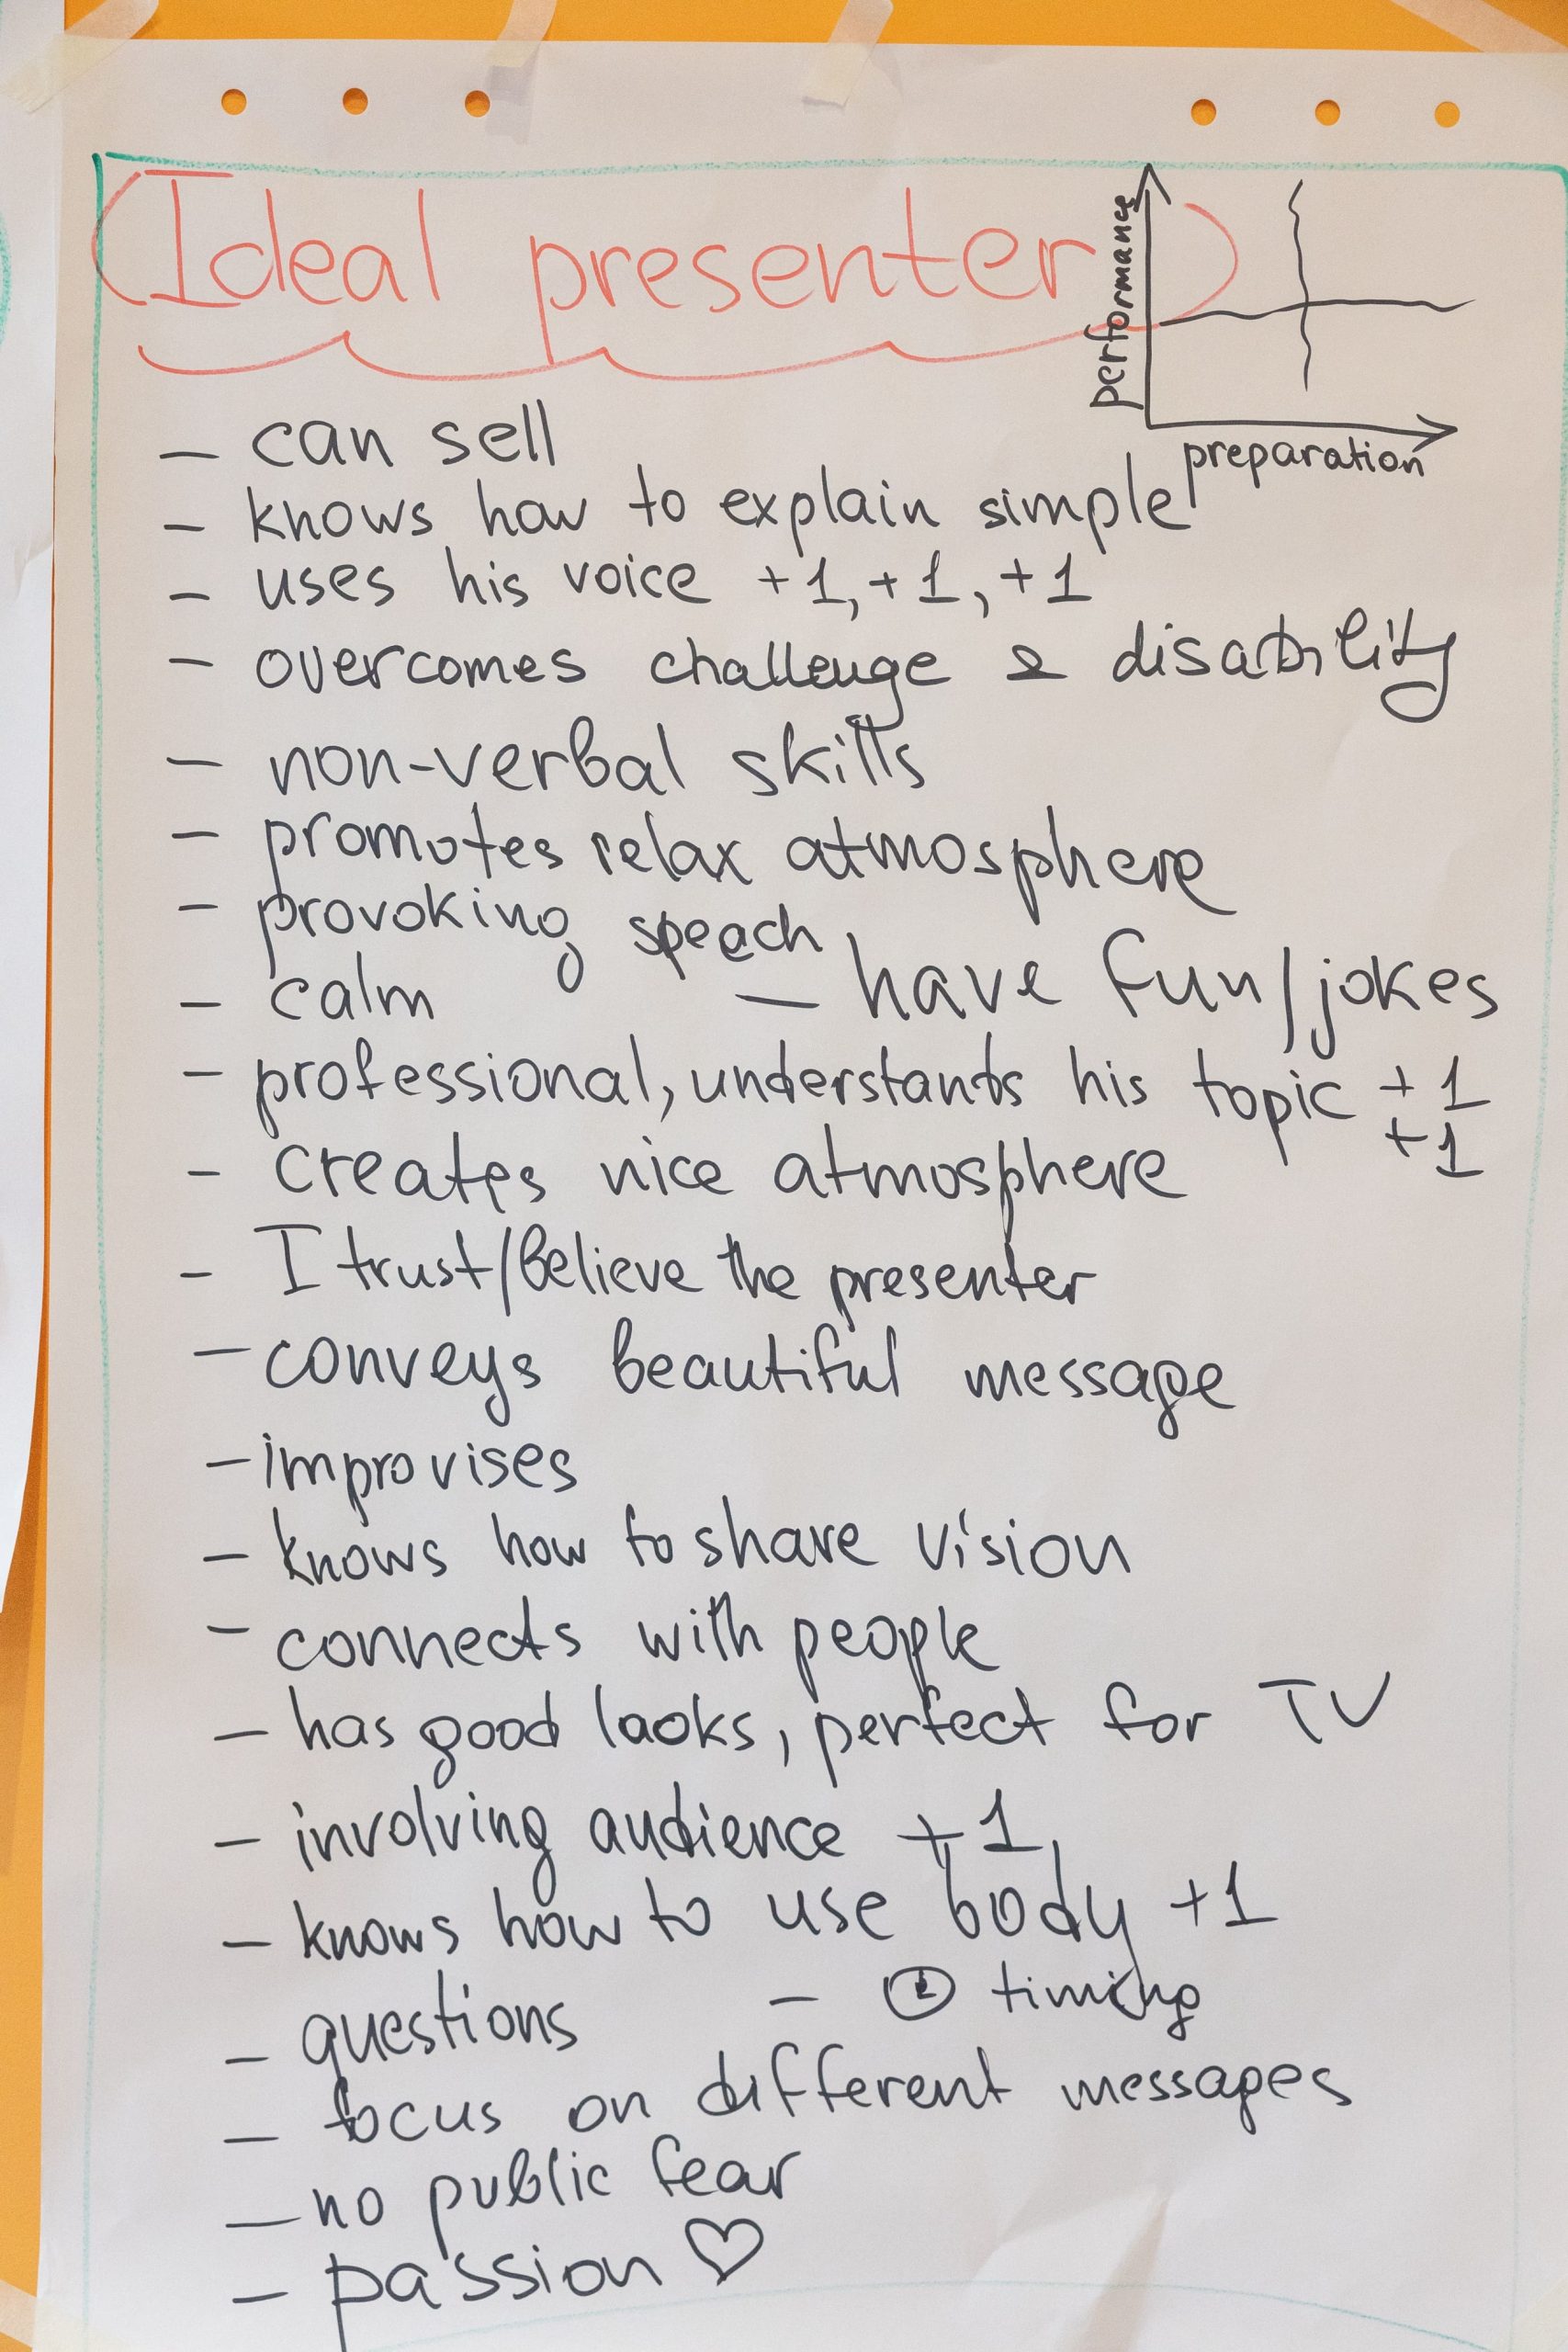 Ideal presenter
performance
preparation
- can sell
- knows how to explain simple
- uses his voice +1, +1, +1
- overcomes challenge & disability
- non-verbal skills
- promotes relax atmosphere
- provoking speach
- calm
- have fun/jokes
- professional, understants his topic +1
+1
- creates nice atmosphere
- I trust/believe the presenter
- conveys beautiful message
- improvises
- knows how to share vision
- connects with people
- has good looks, perfect for TV
- involving audience +1
- knows how to use body +1
- questions
- timing
- focus on different messages
- no public fear
- passion ♡